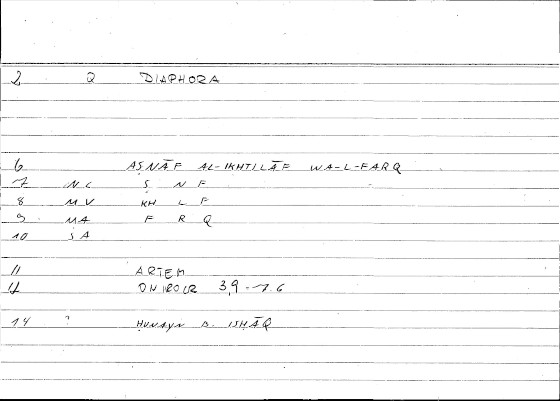 2 Q DIAPHORA
6 AṢNĀF AL-IKHTILĀF WA-L-FARQ
7 NC Ṣ N F
8 MV KH L F
9 MA F R Q
10 SA
11 ARTEM
12 ONIROCR 3,9 - 7.6
14 ? ḤUNAYN B. ISḤĀQ